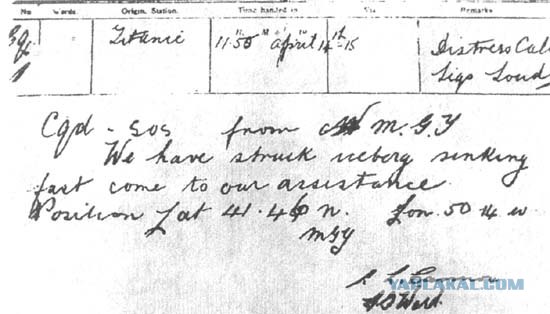 No. Words. Origin. Station. Time handed in Via Remarks
Titanic 11.50 April 14th-15 Distress Call
Sigs Loud
Cqd - SOS from M.G.Y
We have struck iceberg sinking
fast come to our assistance.
Position Lat 41.46 n. Lon. 50.14 w
MGY
YAPLAKAL.COM